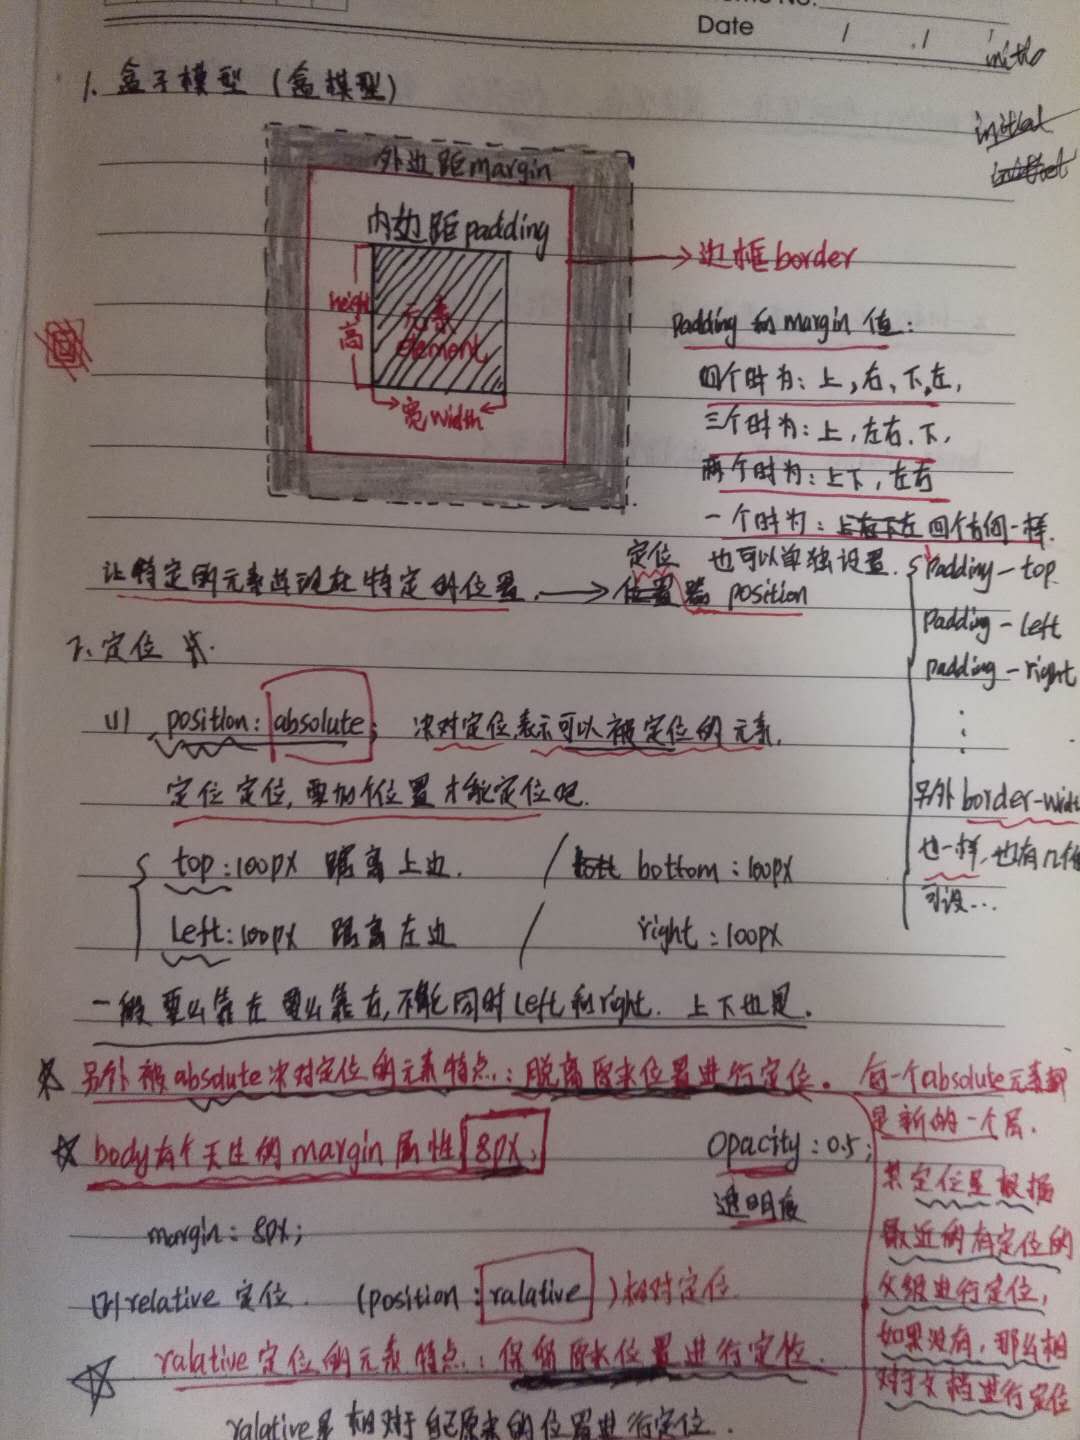 Date / . /
initlo
1. 盒子模型 (盒模型)
外边距margin
内边距padding
→边框border
height
高
元素
element
宽width
padding和margin值:
四个时为: 上,右、下,左,
三个时为: 上,左右、下,
两个时为: 上下,左右
一个时为: 上右下左 四个方向一样.
也可以单独设置. { padding-top
padding-left
padding-right
⋮
另外border-width
也一样,也有几个值
可设...
让特定的元素出现在特定的位置. → 定位 position
2、定位
(1) position: absolute; 决对定位,表示可以被定位的元素.
定位定位,要加个位置才能定位吧.
{ top:100px 距离上边. / bottom:100px
left:100px 距离左边 / right:100px
一般要么靠左要么靠右,不能同时left和right. 上下也是.
☆ 另外被absolute决对定位的元素特点: 脱离原来位置进行定位. 每一个absolute元素都
是新的一个层.
其定位是根据
最近的有定位的
父级进行定位,
如果没有,那么相
对于文档进行定位
☆ body有个天生的margin属性 8px;
opacity:0.5;
透明度
margin: 8px;
relative 定位. (position: ralative) 相对定位
☆ ralative定位的元素特点: 保留原来位置进行定位.
ralative是相对于自己原来的位置进行定位.